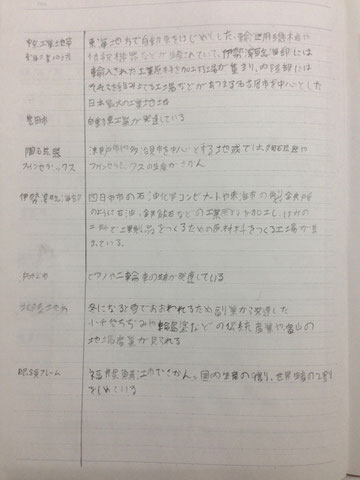 中京工業地帯 東海地方で自動車をはじめとした輸送用機械や
伊勢湾臨海部には
輸入された工業原料を加工する工場が集まり、内陸部には
名古屋市を中心とした
日本最大の工業地帯
豊田市 自動車工業が発達している
陶磁器 瀬戸市や多治見市を中心とする地域では、陶磁器や
ファインセラミックス ファインセラミックスの生産がさかん
伊勢湾臨海部 四日市市の石油化学コンビナートや東海市の製鉄所
のように石油、鉄鉱石などの工業原料を加工し、ほかの
工場で工業製品をつくるための原材料をつくる工場が
ている。
ピアノや二輪車の生産が発達している
北陸地方 冬になると雪でおおわれるため副業が発達した
小千谷ちぢみや輪島塗などの伝統産業や富山の
地場産業が見られる
眼鏡フレーム 福井県鯖江市でさかん。国内生産の9割、世界生産の2割
をしめている